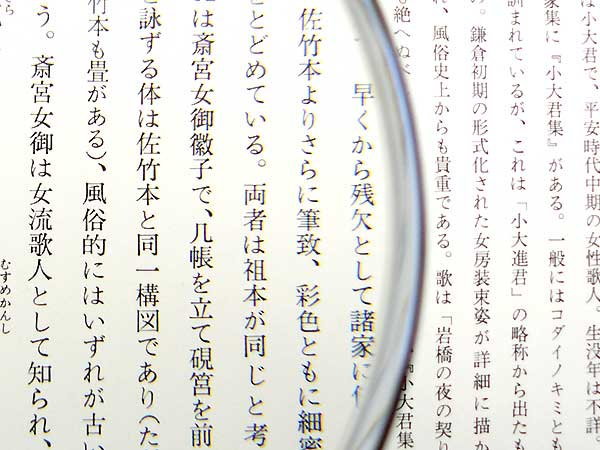 は小大君で、平安時代中期の女性歌人。生没年は不詳。
家集に『小大君集』がある。一般にはコダイノキミとも
訓まれているが、これは「小大進君」の略称から出たも
。鎌倉初期の形式化された女房装束姿が詳細に描か
、風俗史上からも貴重である。歌は「岩橋の夜の契り
も絶へぬべ
小大君集
早くから残欠として諸家に
佐竹本よりさらに筆致、彩色ともに細密
とどめている。両者は祖本が同じと考
は斎宮女御徽子で、几帳を立て硯筥を前
と詠ずる体は佐竹本と同一構図であり(た
竹本も畳がある)、風俗的にはいずれが古い
う。斎宮女御は女流歌人として知られ、
むすめかんし